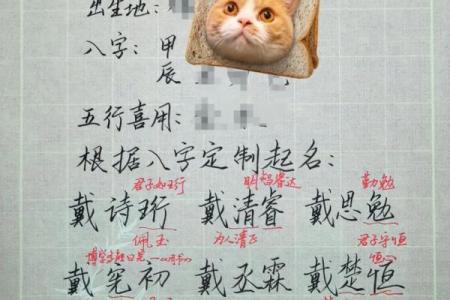 出生地：
八字：甲
辰
五行喜用：
根据八字定制起名：
君子如珩 明哲睿达 勤勉
戴诗珩 戴清睿 戴思勉
佩玉 为人清正 君子守恒
恒心
戴宪初 戴丞霖 戴楚恒